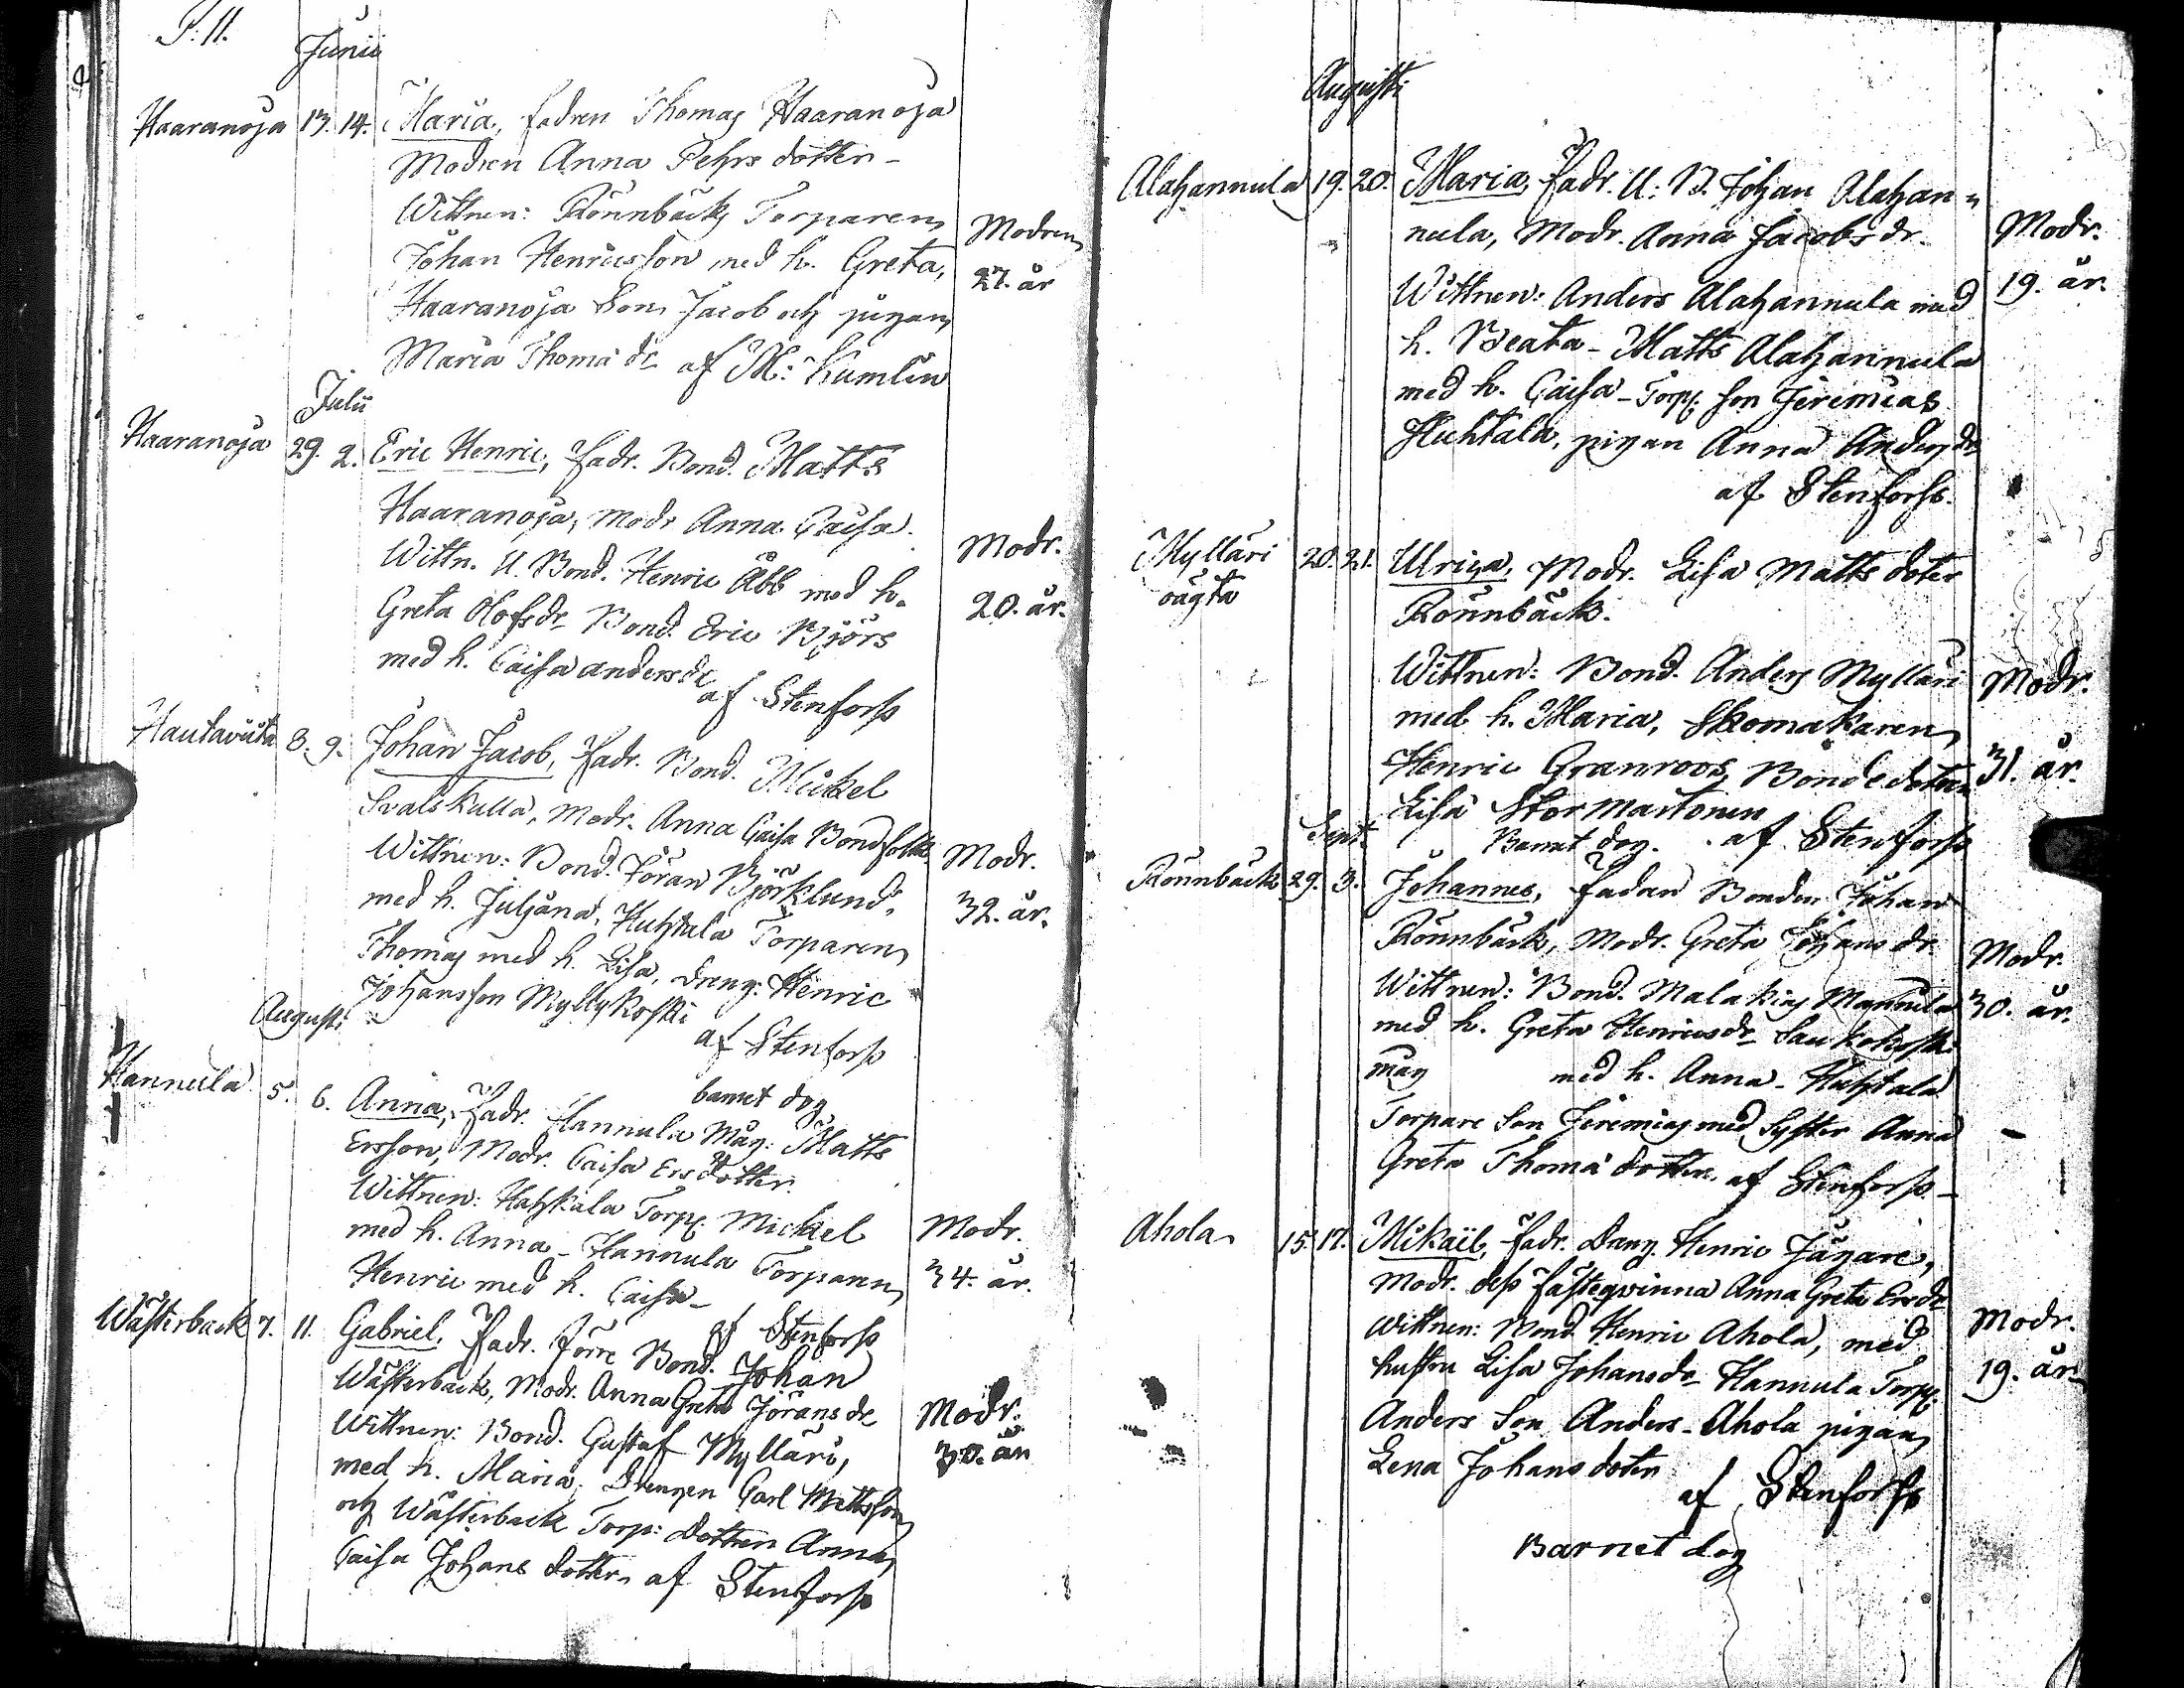 P. 11.
Junii
Haaranoja 13. 14. Maria, fadren Thomas Haaranoja
Modren Anna Pehrs dotter -
Wittnen: Rönnbäcks Torparen
Johan Henricsson med h. Greta,
Haaranoja Son Jacob och pigan
Maria Thomæ dr af M: Kumlin
Modren
27. år
Julii
Haaranoja 29. 2. Eric Henric, Fadr. Bond. Matts
Haaranoja, Modr Anna Caisa.
Wittn. U. Bond. Henric Abb med h.
Greta Olofsdr Bond. Eric Björs
med h. Caisa andersdr
af Stenforss
Modr.
20. år.
Hautaviita 8. 9. Johan Jacob, Fadr. Bond. Mickel
Svalskulla, Modr. Anna Caisa Bondfolk
Wittnen: Bond. Jöran Björklund
med h. Juljana, Huhtala Torparen
Thomas med h. Lisa, dreng: Henric
Johansson Myllykoski
af Stenforss
Modr.
32. år.
Augusti
barnet dog
Hannula 5. 6. Anna, Fadr. Hannula Måg: Matts
Ersson, Modr. Caisa Ersdotter.
Wittnen: Torp. Mickel
med h. Anna - Hannula Torparen
Henric med h. Caisa -
af Stenforss
Modr.
34. år.
Wästerback 7. 11. Gabriel, Fadr. Förre Bond. Johan
Wästerback, Modr. Anna Greta Jörans dr
Wittnen: Bond. Gustaf Mylläri,
med h. Maria, Drengen Carl Mattsson
och Wästerback Torp: dottren Anna
Caisa Johans dotter. af Stenforss
Modr.
30. år
Augusti
Alahannula 19. 20. Maria, Fadr. U: B. Johan Alahan-
nula, Modr. Anna Jacobs dr.
Wittnen: Anders Alahannula med
h. Beata - Matts Alahannula
med h. Caisa - Torp. son Jeremias
Huhtala, pigan Anna Andersdr
af Stenforss.
Modr.
19. år.
Mylläri 20. 21. Ulrica, Modr. Lisa Matts doter
oägta
Rönnbäck.
Wittnen: Bond. Anders Mylläri
med h. Maria, Skomakaren
Henric Granroos, Bondedotren
Lisa Stor Martonen
Barnet dog. af Stenforss
Modr.
31. år.
Sept.
Rönnbäck 29. 3. Johannes, fadren Bonden Johan
Rönnbäck, Modr. Greta Johans dr.
Wittnen: Bond. Malakias Mannula
med h. Greta Henricsdr Saukokoski
måg med h. Anna - Huhtala
Torpare Son Jeremias med Syster Anna
Greta Thomæ dotter. af Stenforss -
Modr.
30. år.
Ahola 15. 17. Mikaël, Fadr. Dräng. Henric Jägare,
Modr. dess Fästeqwinna Anna Greta Ersdr
Wittnen: Bond. Henric Ahola, med
hustru Lisa Johansdr Hannula Torp.
Anders Son Anders - Ahola pigan
Lena Johans doter
af Stenforss
Barnet dog
Modr.
19. år